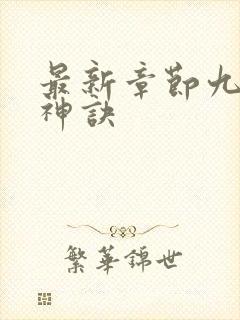 最新章節九
神訣
繁華錦世